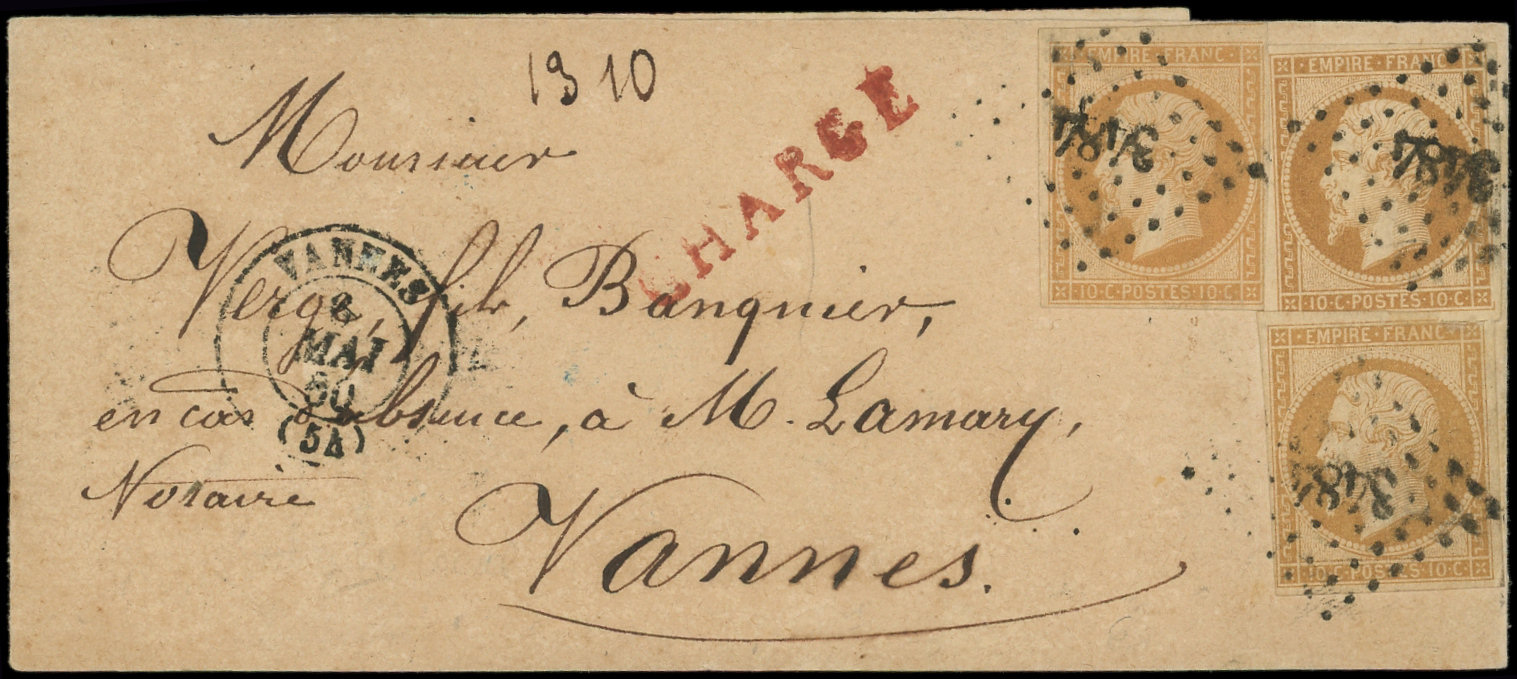 1310
Monsieur
CHARGE
Verge, fils, Banquier,
en cas d'absence, à M. Lamary,
Notaire
Vannes.
VANNES
8
MAI
60
(54)
EMPIRE FRANC
3484
10·C·POSTES·10·C
EMPIRE FRANC
3484
10·C·POSTES·10·C
EMPIRE FRANC
3484
10·C·POSTES·10·C